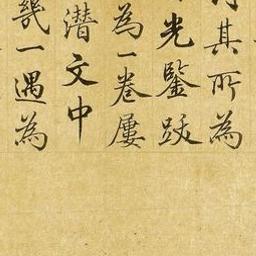 其所為
光鑒跋
為一卷屢
潛文中
幾一遇為